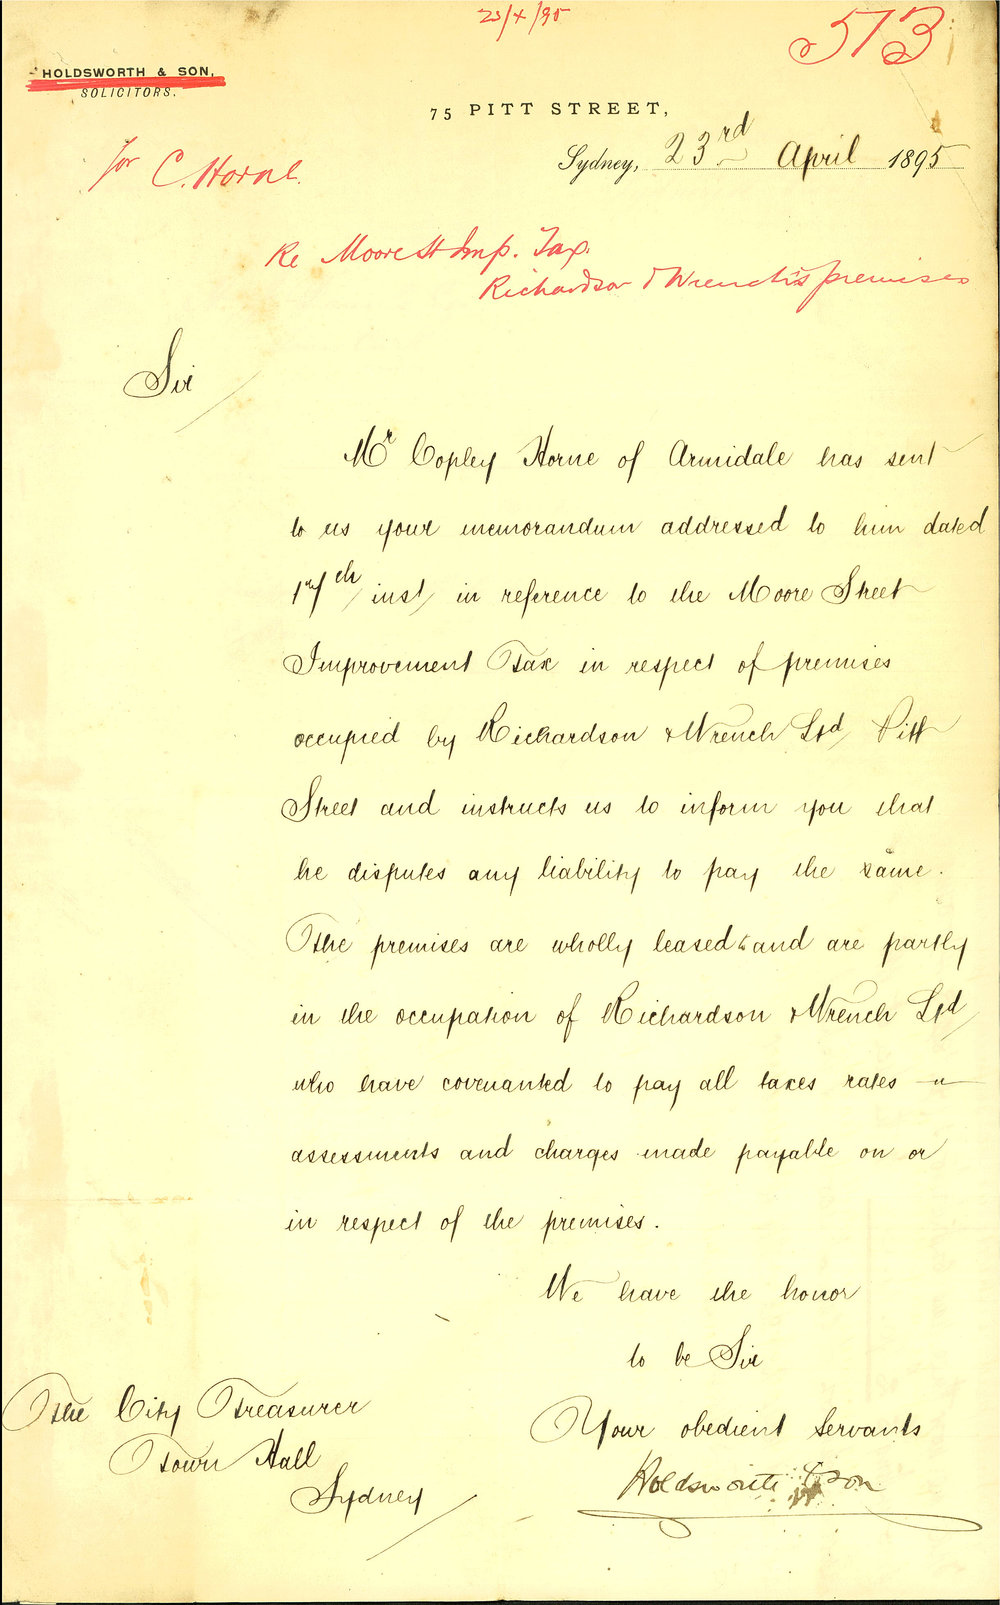 23/4/95
573
HOLDSWORTH & SON,
SOLICITORS.
75 PITT STREET,
Sydney, 23rd April 1895
for C. Horne.
Re Moore St Imp. Tax.
Richardson & Wrench's premises
Sir
Mr Copley Horne of Armidale has sent
to us your memorandum addressed to him dated
17th inst in reference to the Moore Street
Improvement Tax in respect of premises
occupied by Richardson & Wrench Ltd Pitt
Street and instructs us to inform you that
he disputes any liability to pay the same.
The premises are wholly leased and are partly
in the occupation of Richardson & Wrench Ltd
who have covenanted to pay all taxes rates
assessments and charges made payable on or
in respect of the premises.
We have the honor
to be Sir
Your obedient servants
Holdsworth & Son
The City Treasurer
Town Hall
Sydney